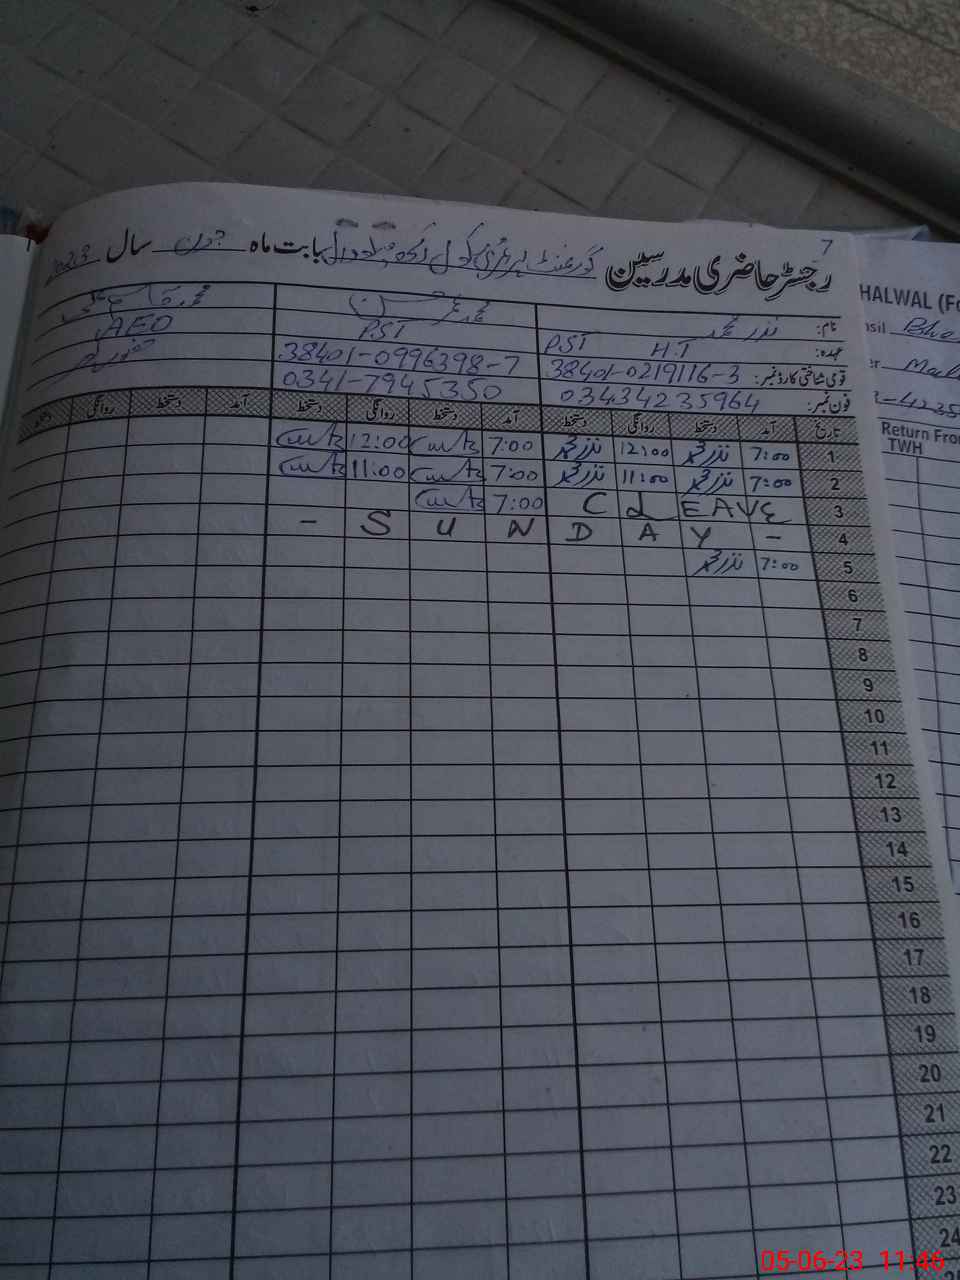 7
رجسٹر حاضری مدرسین گورنمنٹ پرائمری سکول بابت ماہ جون سال 2023
نام: نذر محمد
عہدہ: PST H.T PST AEO
قومی شناختی کارڈ نمبر: 38401-0219116-3 38401-0996398-7
فون نمبر: 03434235964 0341-7945350
تاریخ آمد دستخط روانگی دستخط آمد دستخط روانگی دستخط آمد دستخط روانگی دستخط
1 7:00 نذر محمد 12:00 نذر محمد 7:00 12:00
2 7:00 نذر محمد 11:00 نذر محمد 7:00 11:00
3 C L EAVE 7:00
4 - S U N D A Y -
5 7:00 نذر محمد
6
7
8
9
10
11
12
13
14
15
16
17
18
19
20
21
22
23
24
HALWAL
Return From
TWH
05-06-23 11:46